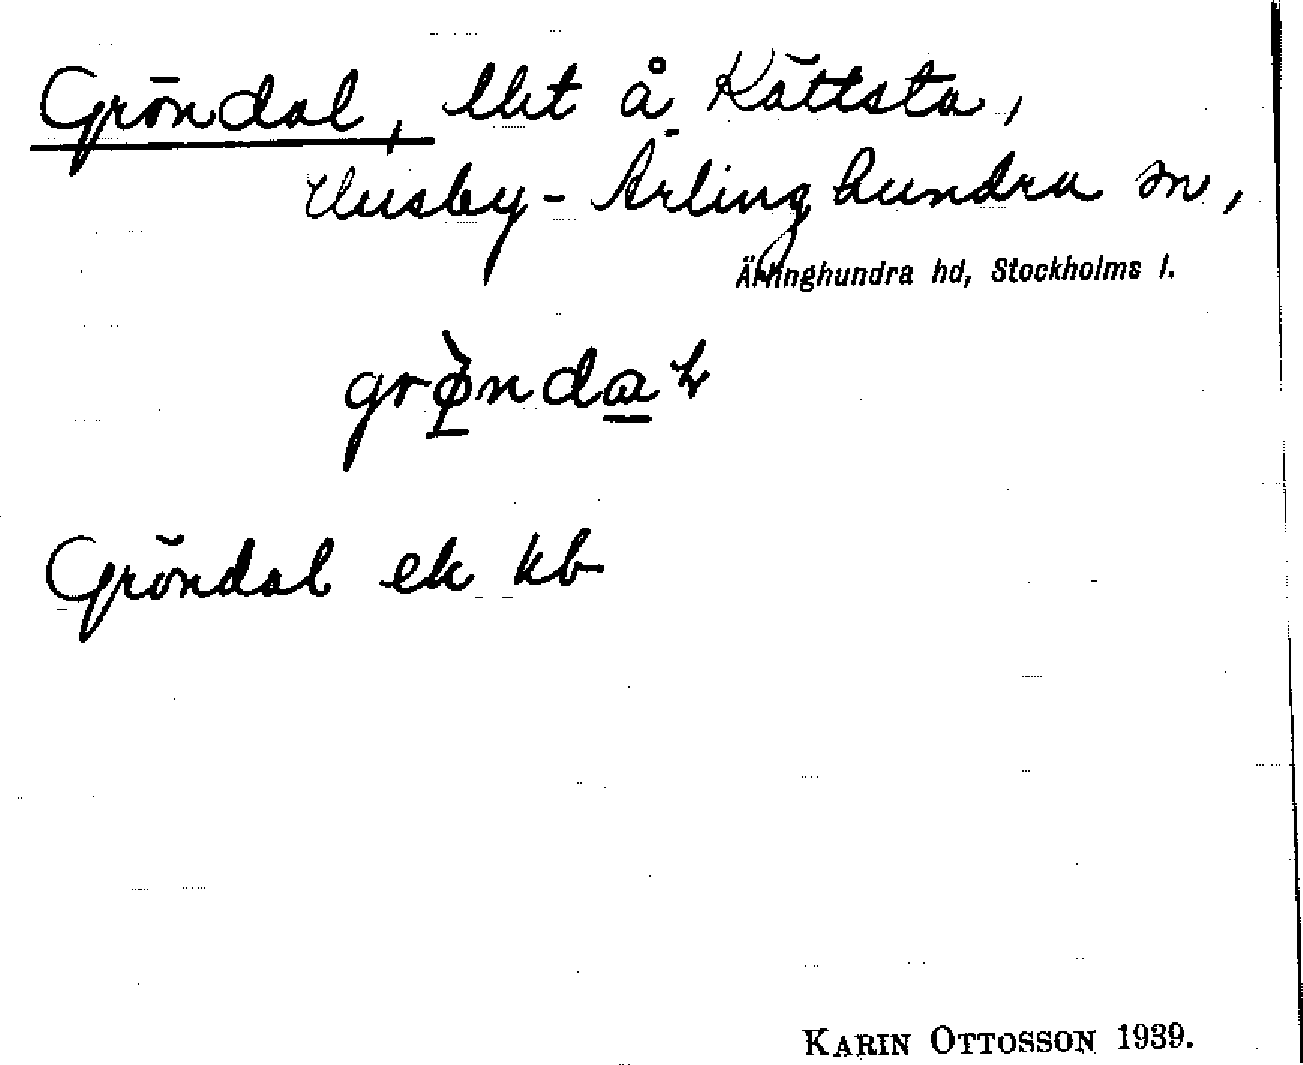 Gröndal, lht å Kättsta,
Husby-Ärlinghundra sn,
Ärlinghundra hd, Stockholms l.
Gröndal ek kb
KARIN OTTOSSON 1939.